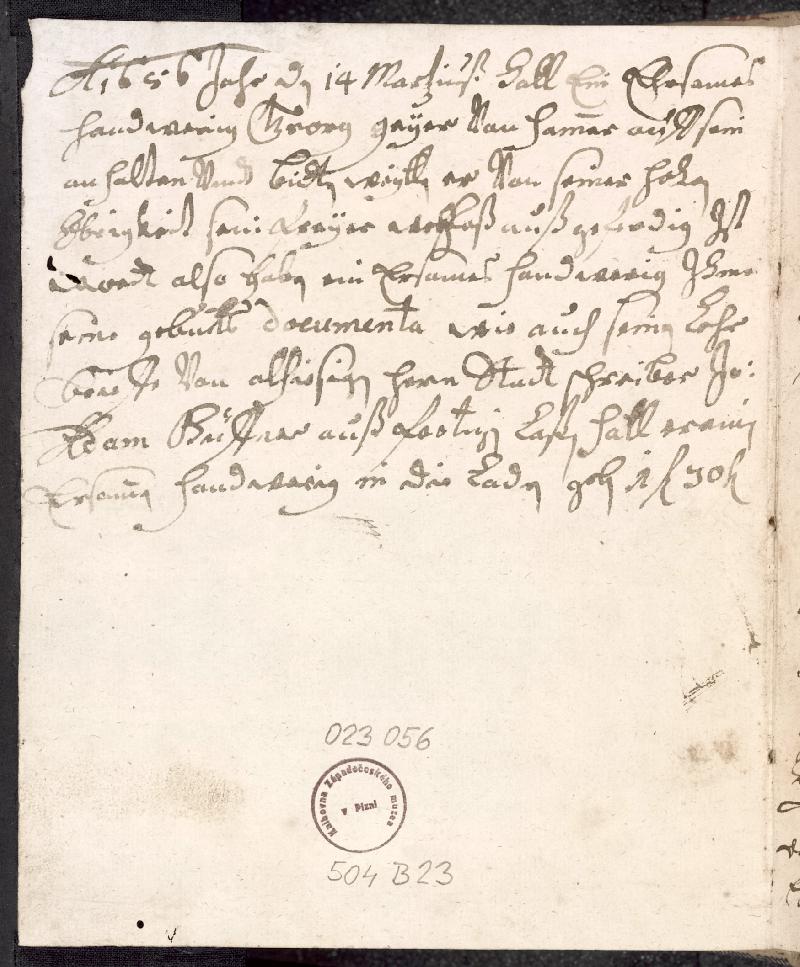 A 1656 Jahr dn 14 Martzius hatt Ein Ehrsames
handwerig Georg geyer Von hamer auff sein
anhalten Vnd bidtn weylln er Von seiner hohen
Obrigkeit sein freyer auß geferdig Ist
wordt also habn ein Ersames handwerig Ihme
seine geburts documenta wie auch seine Lehr
Von alhiesign hern Stadt schreiber Jo:
Adam Büttner auß fertign Lasn hatt er ein
Ersamen handwerig in die Ladn gebn 1 f 30 k
023 056
Knihovna Západočeského musea
v Plzni
504 B 23